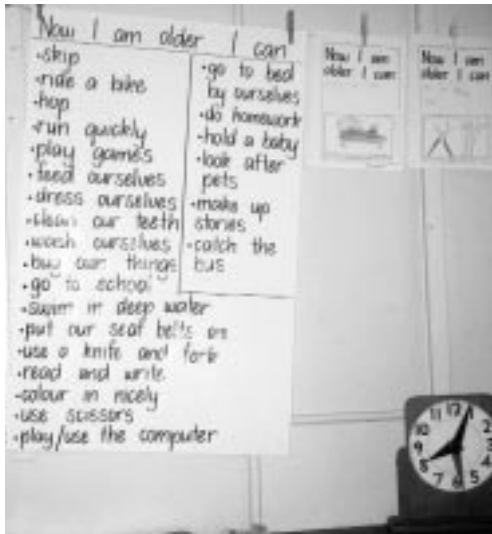 Now I am older I can
•skip
•ride a bike
•hop
•run quickly
•play games
•feed ourselves
•dress ourselves
•clean our teeth
•wash ourselves
•buy our things
•go to school
•swim in deep water
•put our seat belts on
•use a knife and fork
•read and write
•colour in nicely
•use scissors
•play/use the computer
•go to bed
by ourselves
•do homework
•hold a baby
•look after
pets
•make up
stories
•catch the
bus
Now I am
older I can
Now I am
older I can
12
1
2
3
4
5
6
7
8
9
10
11